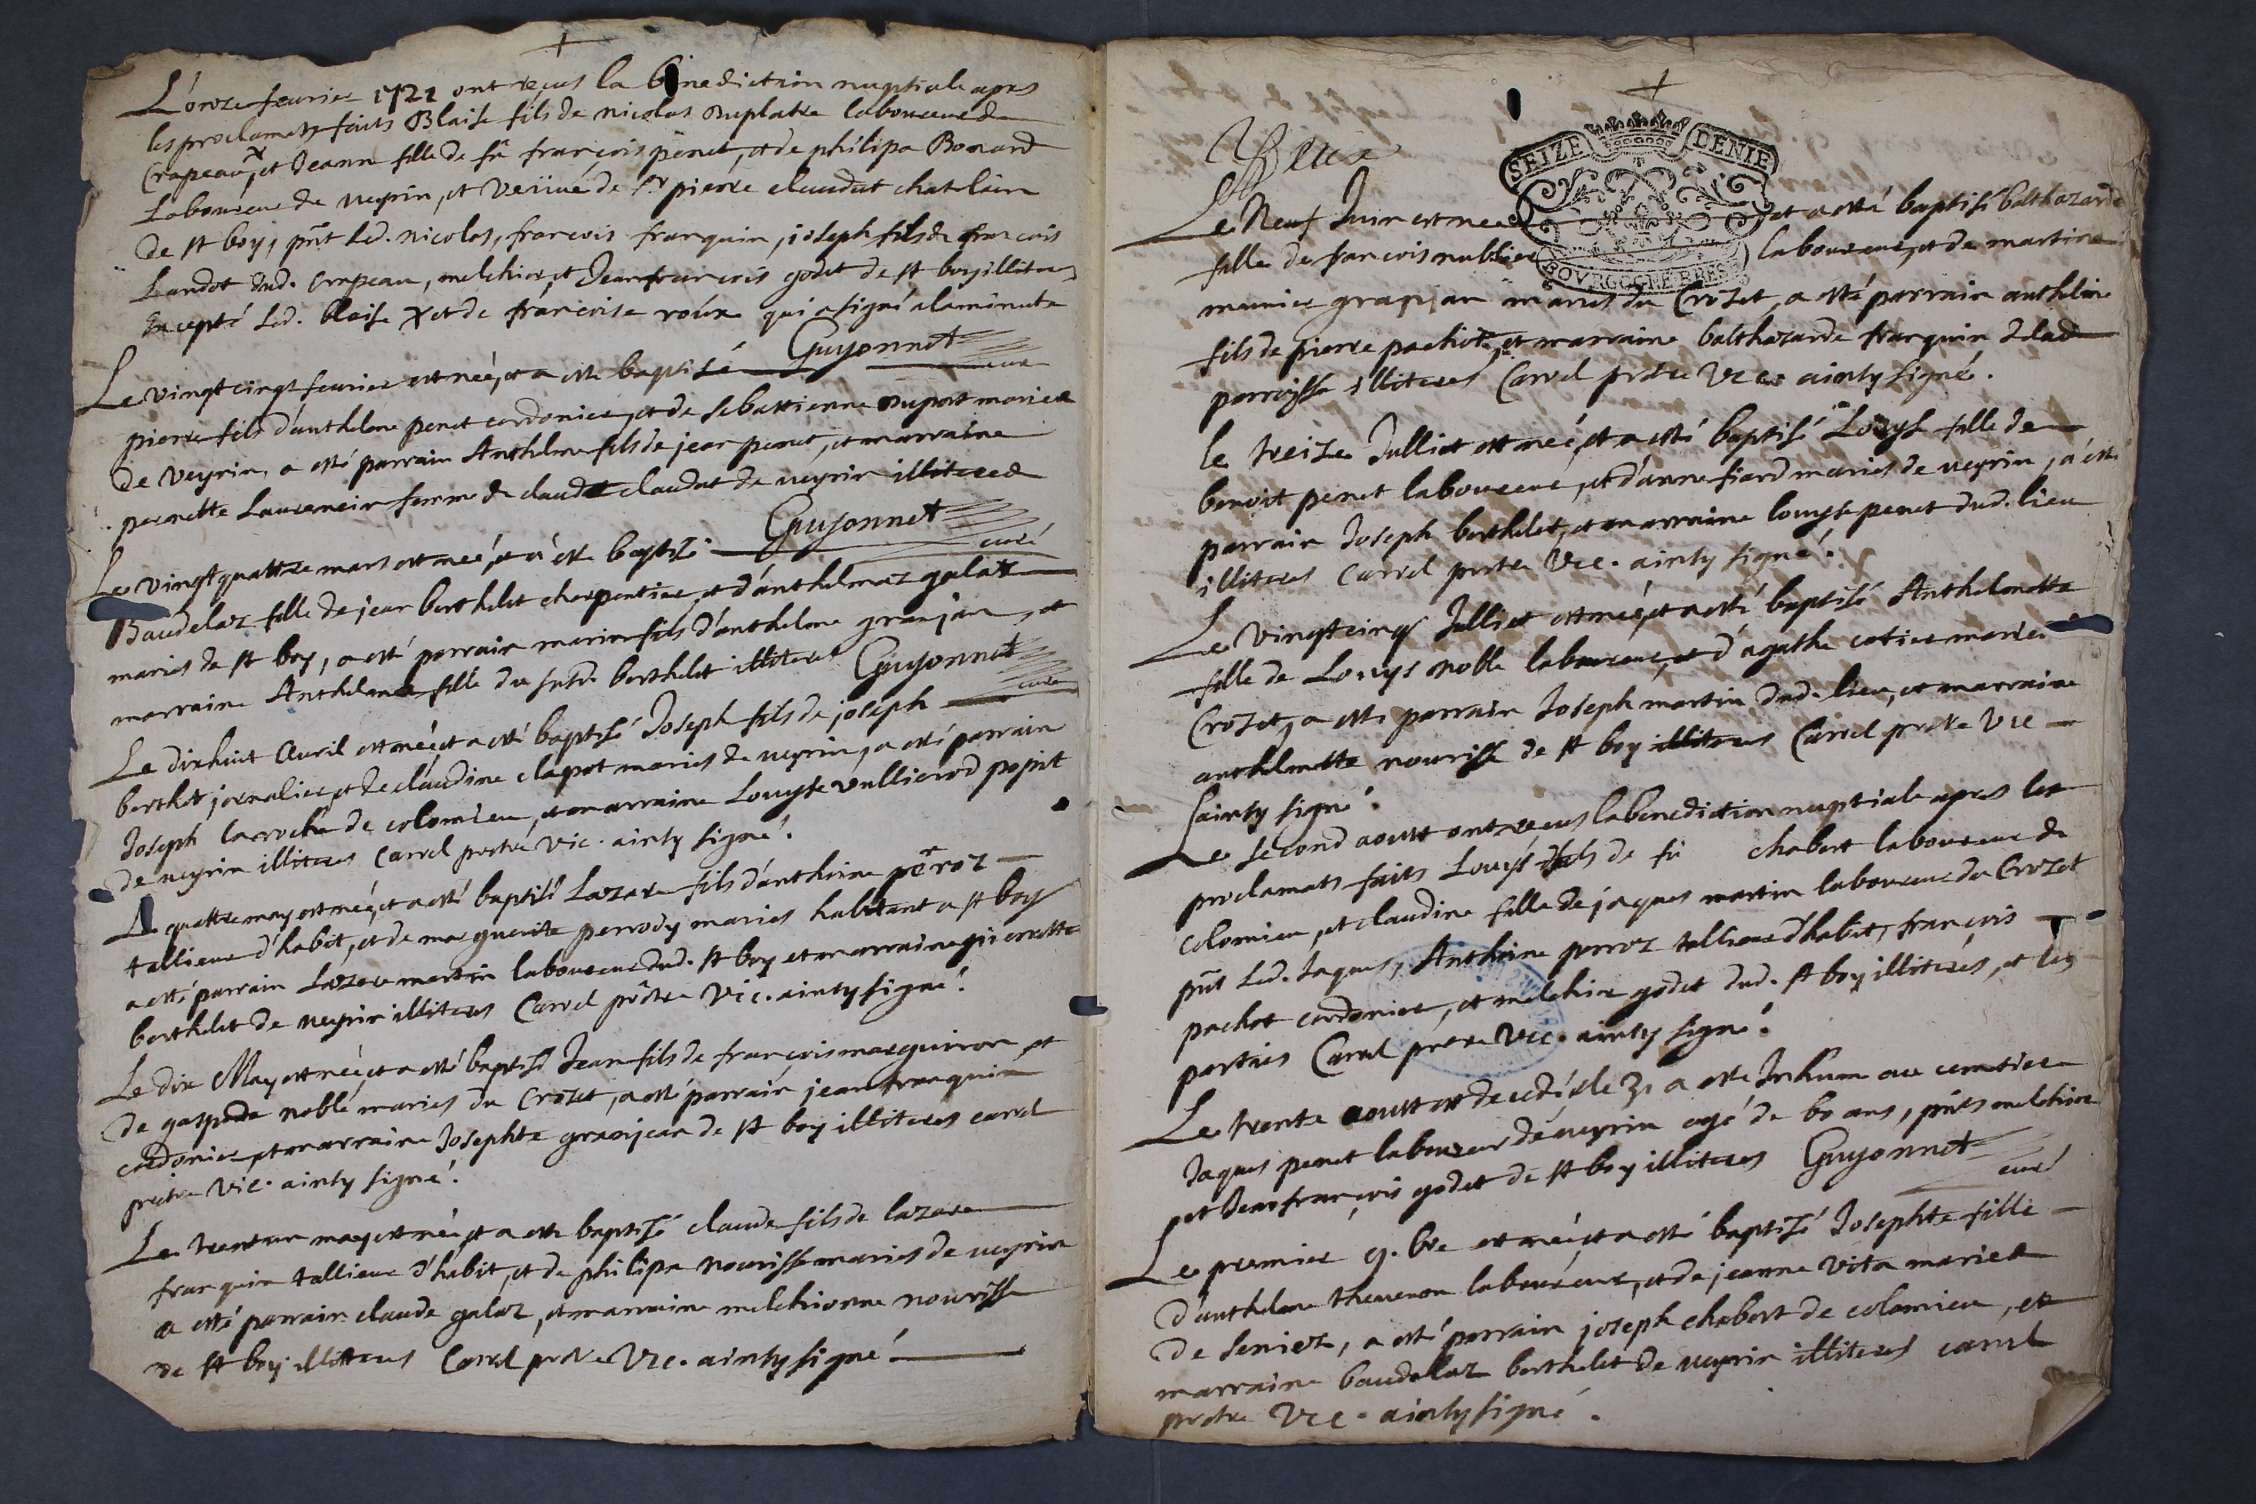 L'onze feurier 1721 ont reçus la benediction nuptiale apres
les proclamats faits Blaise fils de nicolas Duplatre laboureur de
Crapeau, et Jeanne fille de fû françois penet, et de philipa Bonard
Laboureur de veyrin, et veüiue de Sr pierre claudut chatelain
de st boys, pñt led. nicolas, francois franquin, joseph fils de francois
Landot dud. Crapeau, melchior, et Jeanfrancois godet de st boy illiteres
Excepté led. Blaise χ et de francoise roûx qui a signé a la minute
Guyonnet curé
Le vingt cinq feurier est neé, et a esté baptisé
pierre fils d'anthelme penet cordonier, et de sebastienne Duport mariez
de veyrin, a esté parrain Anthelme fils de jean penet, et marraine
pernette Laurencin femme de claude claudut de veyrin illiteres
Guyonnet curé
Le vingt quattre mars est neé, et a esté baptisé
Baudelaz fille de jean berthelet charpentier, et d'anthelmaz galaz
mariés de st boy, a esté parrain marin fils d'anthelme granjan, et
marraine Anthelmaz fille du susd. berthelet illiteres Guyonnet
curé
Le dixhuit Auril est neé, et a esté baptisé Joseph fils de joseph
berthet jornalier, et de claudine clapot mariés de veyrin, a esté parrain
Joseph laroche de colomieu, et marraine Louyse vullierod
de veyrin illiteres Carrel prêtre vic. ainsy signé.
Le quattre may est neé, et a esté baptisé Lazare fils d'anthoine perroz
tallieur d'habit, et de marguerite perrody mariés habitant a st boy
a esté parrain Lazare martin laboureur dud. st boy et marraine pierrette
berthelet de veyrin illiteres Carrel prêtre vic. ainsy signé.
Le dix May est neé, et a esté baptisé Jean fils de françois marguiron, et
de gasparde noble mariés du Crozet, a esté parrain jean franquin
cordonier, et marraine Josephte granjean de st boy illiteres carrel
prêtre vic. ainsy signé.
Le trentun may est neé, et a esté baptisé claude fils de lazare
franquin tallieur d'habit, et de philipa nourisse mariés de veyrin
a esté parrain claude galaz, et marraine melchionne nourisse
de st boy illiteres Carrel prêtre vic. ainsy signé
SEIZE DENIE
BOURGOGNE BRES
Le Neuf Juin est neé et a esté baptisé balthazarde
fille de francois nublier laboureur, et de martine
meunier granjan mariés du Crozet, a esté parrain anthelme
fils de pierre pachot, et marraine balthazarde franquin de lad.
parroysse illiteres Carrel prêtre vic. ainsy signé.
le treize Julliet est neé, et a esté baptisé Louyse fille de
benoit penet laboureur, et d'anne fiard mariés de veyrin, a esté
parrain Joseph berthelet, et marraine louyse penet dud. lieu
illiteres Carrel prêtre vic. ainsy signé.
Le vingt cinq Julliet est neé, et a esté baptisé Anthelmette
fille de Louys noble laboureur, et d'agathe cotier mariés
Crozet, a esté parrain Joseph martin dud. lieu, et marraine
anthelmette nourisse de st boy illiteres Carrel prêtre vic
ainsy signé.
Le second aoust ont reçus la benediction nuptiale apres les
proclamats faits Louys fils de fû chabert laboureur de
colomieu, et claudine fille de jaques martin laboureur du Crozet
pñt led. Jaques, Anthoine perroz tallieur d'habit, françois
pachot cordonier, et melchior godet dud. st boy illiteres, et les
parties Carrel prêtre vic. ainsy signé.
Le trente aoust est decedé, et le 31 a esté Inhumé au cemetiere
Jaques penet laboureur de veyrin agé de 60 ans, pñts melchior
et Jeanfrançois godet de st boy illiteres Guyonnet
curé
Le premier 9.bre est neé, et a esté baptisé Josephte fille
d'anthelme theuenon laboureur, et de jeanne vita mariez
de seniez, a esté parrain joseph chabert de colomieu, et
marraine baudelaz berthelet de veyrin illiteres carrel
prêtre vic. ainsy signé.